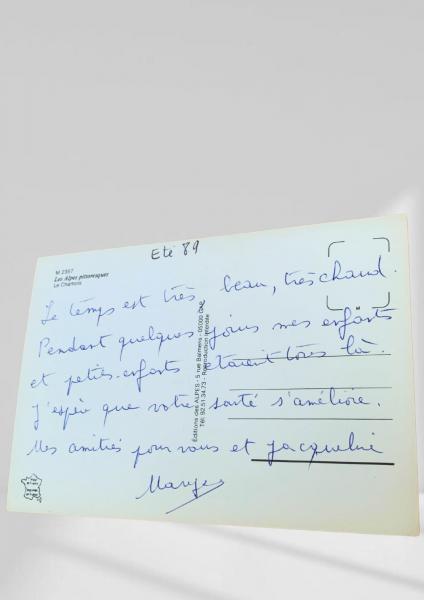 Eté 89
M 2357
Les Alpes pittoresques
Le Chamois
Le temps est très beau, très chaud.
Pendant quelques jours mes enfants
et petits-enfants etaient tous là.
J'espère que votre santé s'améliore.
Mes amitiés pour vous et Jacqueline
Editions des ALPES - 5 rue - 05000 GAP
Tél. 92.51.34.73 - Reproduction interdite